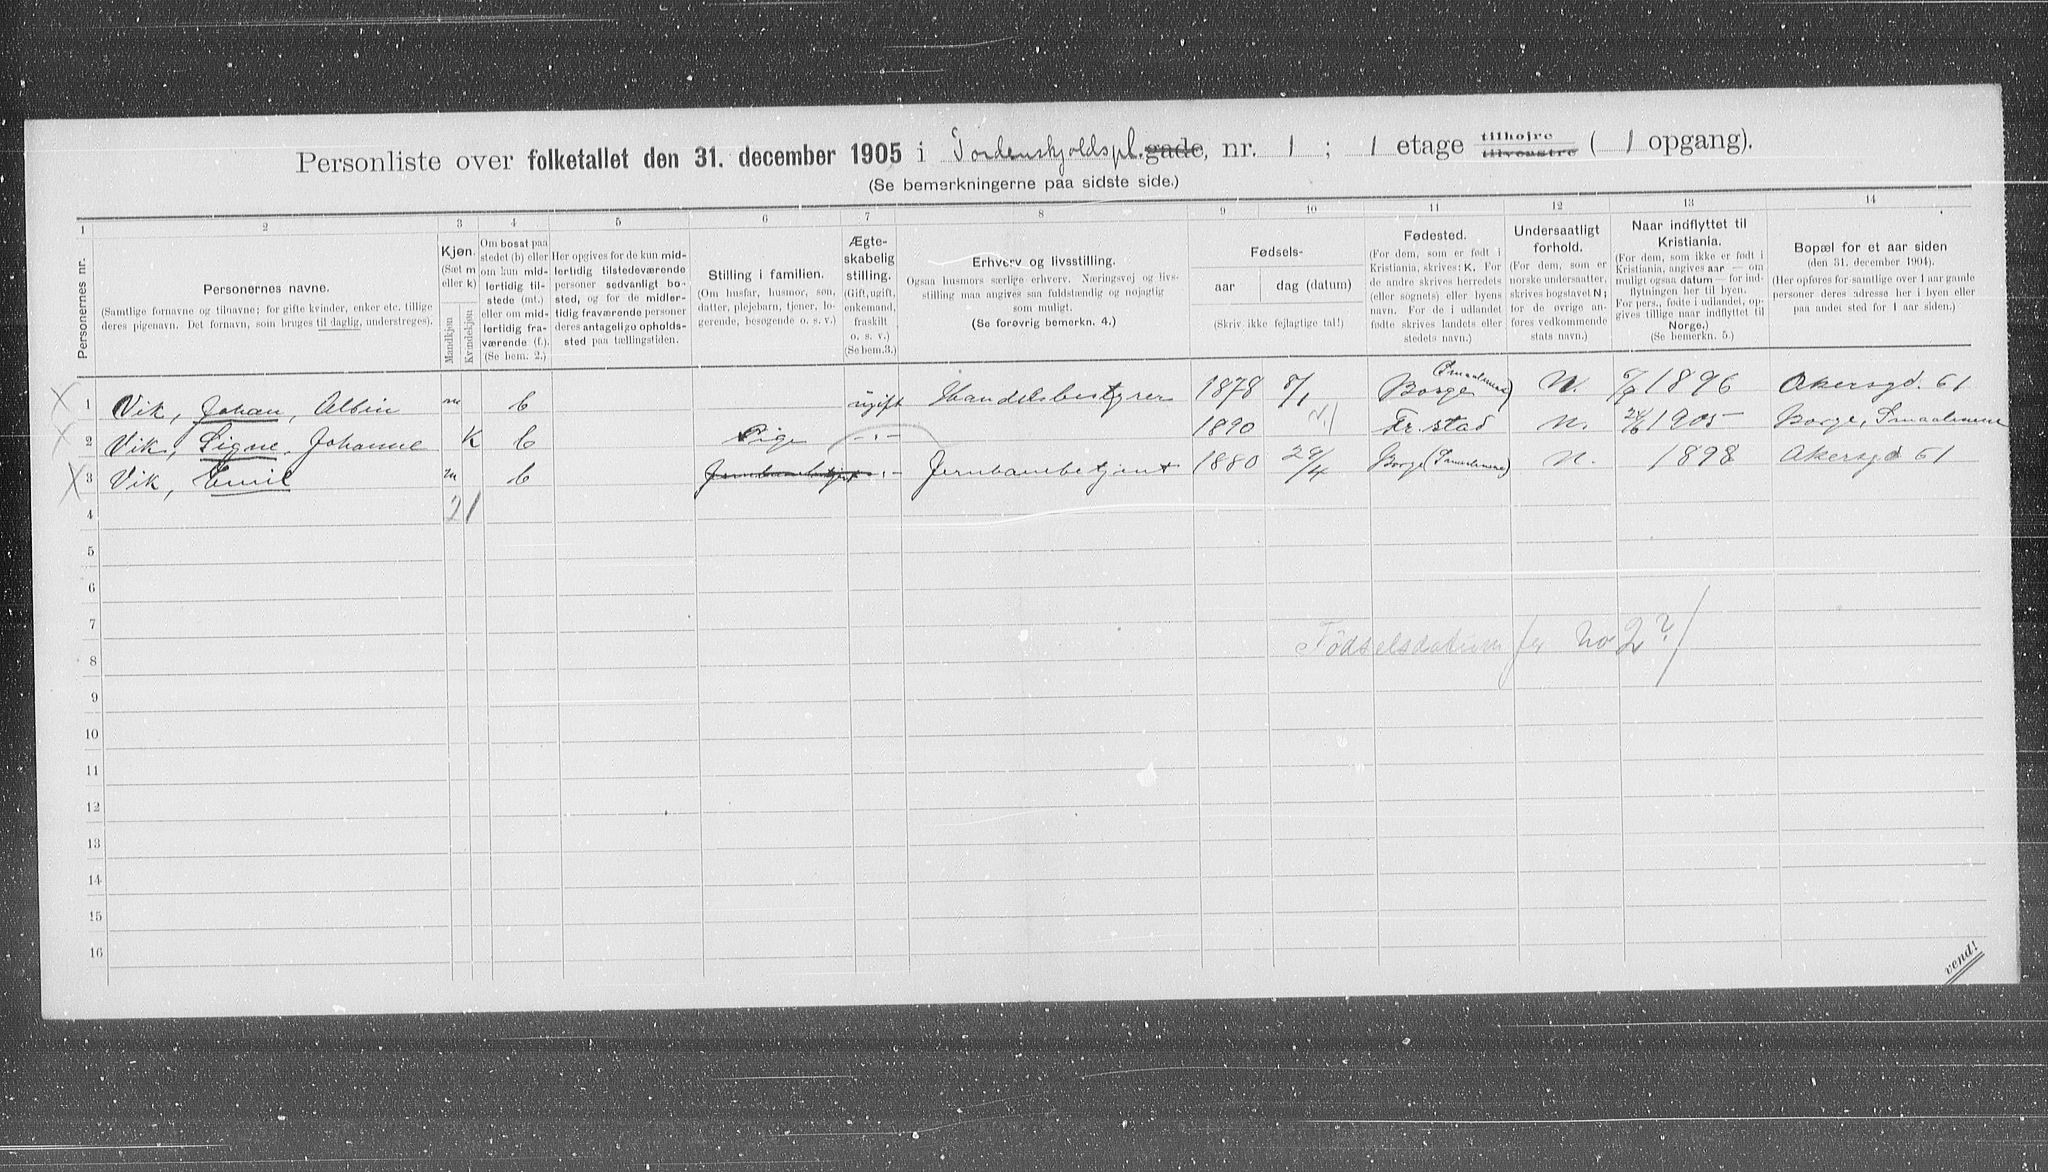 Personliste over folketallet den 31. december 1905 i Tordenskjoldspl. gade, nr. 1 ; 1 etage tilhøjre tilvenstre ( 1 opgang).
(Se bemærkningerne paa sidste side.)
1 2 3 4 5 6 7 8 9 10 11 12 13 14
Personernes nr.
Personernes navne.
(Samtlige fornavne og tilnavne; for gifte kvinder, enker etc. tillige
deres pigenavn. Det fornavn, som bruges til daglig, understreges).
Kjøn.
(Sæt m
eller k)
Mandkjøn
Kvindekjøn
Om bosat paa
stedet (b) eller
om kun mid-
lertidig til-
stede (mt.)
eller om mid-
lertidig fra-
værende (f.).
(Se bem. 2.)
Her opgives for de kun mid-
lertidig tilstedeværende
personer sedvanligt bo-
sted, og for de midler-
tidig fraværende personer
deres antagelige opholds-
sted paa tællingstiden.
Stilling i familien.
(Om husfar, husmor, søn,
datter, plejebarn, tjener, lo-
gerende, besøgende o. s. v.)
Ægte-
skabelig
stilling.
(Gift, ugift,
enkemand,
fraskilt
o. s. v.)
(Se bem. 3.)
Erhverv og livsstilling.
Ogsaa husmors særlige erhverv. Næringsvej og livs-
stilling maa angives saa fuldstændig og nøjagtig
som muligt.
(Se forøvrig bemerkn. 4.)
Fødsels-
aar
dag (datum)
(Skriv ikke fejlagtige tal!)
Fødested.
(For dem, som er født i
Kristiania, skrives: K. For
de andre skrives herredets
(eller sognets) eller byens
navn. For de i udlandet
fødte skrives landets eller
stedets navn.)
Undersaatligt
forhold.
(For dem, som er
norske undersaatter,
skrives bogstavet N;
for de øvrige an-
føres vedkommende
stats navn.)
Naar indflyttet til
Kristiania.
(For dem, som ikke er født i
Kristiania, angives aar — om
muligt ogsaa datum — for ind-
flytningen her til byen.
For pers., fødte i udlandet, op-
gives tillige naar indflyttet til
Norge.)
(Se bemerkn. 5.)
Bopæl for et aar siden
(den 31. december 1904).
(Her opføres for samtlige over 1 aar gamle
personer deres adresse her i byen eller
paa andet sted for 1 aar siden.)
1 Vik, Johan, Albin m b ugift Handelsbestyrer 1878 8/1 Borge (Smaalenene) N. 6/9 1896 Akersgd. 61
2 Vik, Signe, Johanne K b Pige -.- 1890 Fr.stad N. 1905 Borge, Smaalenene
3 Vik, Emil m b Jernbanebetjent -.- Jernbanebetjent 1880 29/4 Borge (Smaalenene) N. 1898 Akersgd 61
4 2 1
5
6
7
8 Fødselsdatum for no 2 ?
9
10
11
12
13
14
15
16
vend!